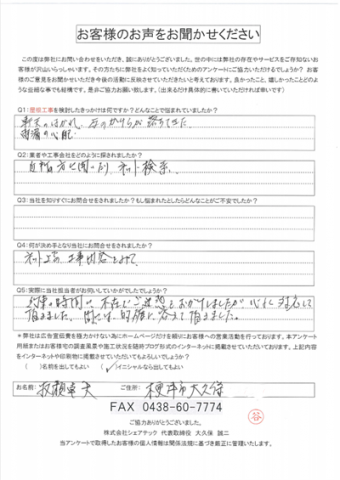 お客様のお声をお聞かせください
この度は弊社にお問い合わせをいただき、誠にありがとうございました。世の中には弊社の存在やサービスをご存知ないお
客様が沢山いらっしゃいます。その方たちに弊社をよく知っていただくためのアンケートにご協力いただけるでしょうか？ お客
様のご意見をお聞かせいただき今後の活動に反映させていただきたいと考えております。良かったこと、嬉しかったことどのよ
うな些細な事でも結構です。是非ご協力お願い致します。（出来るだけ具体的に書いていただければ幸いです）
Q1：屋根工事を検討したきっかけは何ですか？どんなことで悩まれていましたか？
軒天のはがれ、瓦のかけらが落ちてきた。
雨漏の心配
Q2：業者や工事会社をどのように探されましたか？
ネット検索。
Q3：当社を知りすぐにお問合せをされましたか？もし悩まれたとしたらどんなことがご不安でしたか？
Q4：何が決め手となり当社にお問合せをされましたか？
ネット上の工事内容をみて。
Q5：実際に当社担当者がお伺いしていかがでしたでしょうか？
ご迷惑をおかけしましたが
頂きました。 的確に答えて頂きました。
＊弊社は広告宣伝費を極力かけない為にホームページだけを頼りにお客様への営業活動を行っております。本アンケート
用紙またはお客様宅の調査風景や施工状況を随時ブログ形式のインターネットに掲載させていただいております。上記内容
をインターネットや印刷物に掲載させていただいてもよろしいでしょうか？
（ ）名前を出してもよい （✓）イニシャルなら出してもよい
お名前： ご住所： 大久保
FAX 0438-60-7774
ご協力ありがとうございました。
株式会社シェアテック 代表取締役 大久保 誠二
当アンケートで取得したお客様の個人情報は関係法規に基づき厳正に管理いたします。